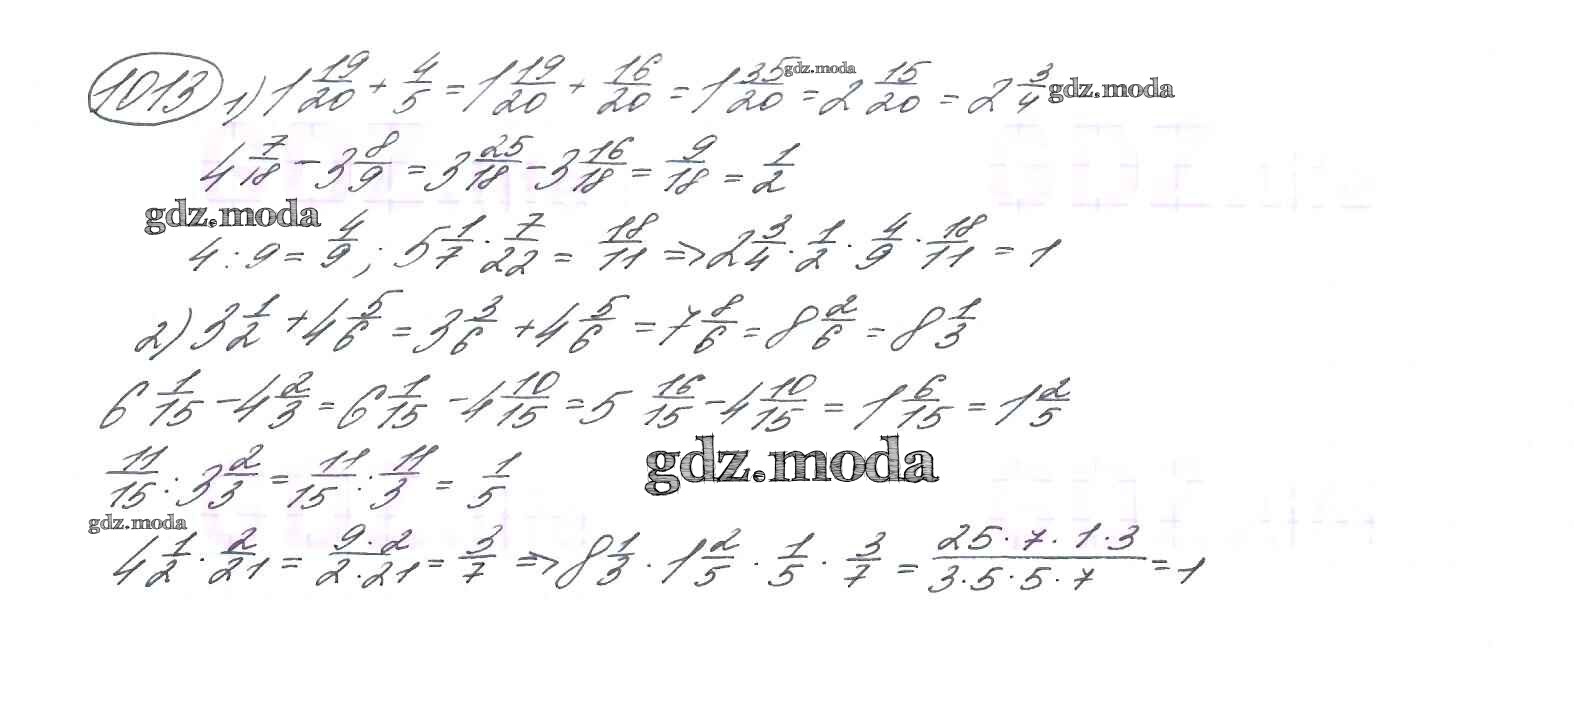 1013 1) 1 19/20 + 4/5 = 1 19/20 + 16/20 = 1 35/20 = 2 15/20 = 2 3/4
gdz.moda
gdz.moda
4 7/18 - 3 8/9 = 3 25/18 - 3 16/18 = 9/18 = 1/2
gdz.moda
4 : 9 = 4/9 ; 5 1/7 · 7/22 = 18/11 => 2 3/4 · 1/2 · 4/9 · 18/11 = 1
2) 3 1/2 + 4 5/6 = 3 3/6 + 4 5/6 = 7 8/6 = 8 2/6 = 8 1/3
6 1/15 - 4 2/3 = 6 1/15 - 4 10/15 = 5 16/15 - 4 10/15 = 1 6/15 = 1 2/5
11/15 : 3 2/3 = 11/15 : 11/3 = 1/5
gdz.moda
gdz.moda
4 1/2 · 2/21 = 9·2/2·21 = 3/7 => 8 1/3 · 1 2/5 · 1/5 · 3/7 = 25·7·1·3/3·5·5·7 = 1